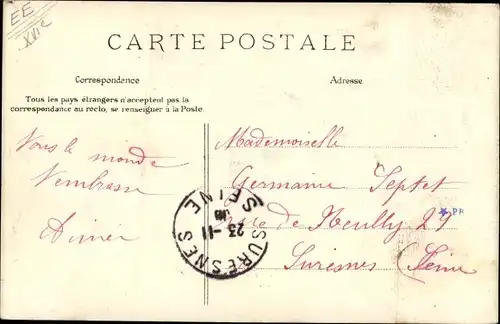 EE
XVIe
CARTE POSTALE
Correspondance
Adresse
Tous les pays étrangers n'acceptent pas la
correspondance au recto, se renseigner à la Poste.
Tous le monde
t'embrasse
Aimée
Mademoiselle
Germaine Septet
rue de Neuilly 29
Suresnes (Seine
SURESNES
(SEINE)
23 -11
* PR